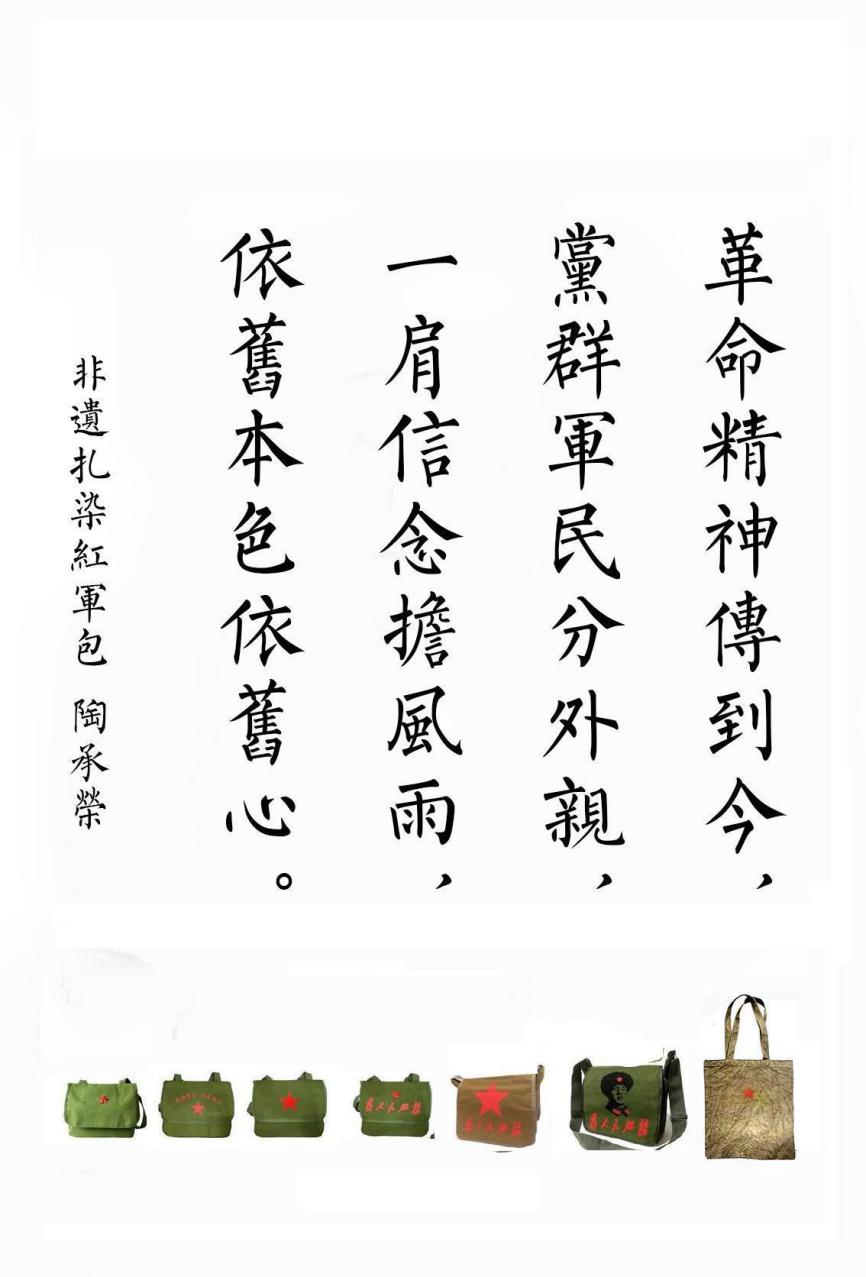 革命精神傳到今，
黨群軍民分外親，
一肩信念擔風雨，
依舊本色依舊心。
非遺扎染紅軍包 陶承榮
為人民服務
為人民服務
為人民服務